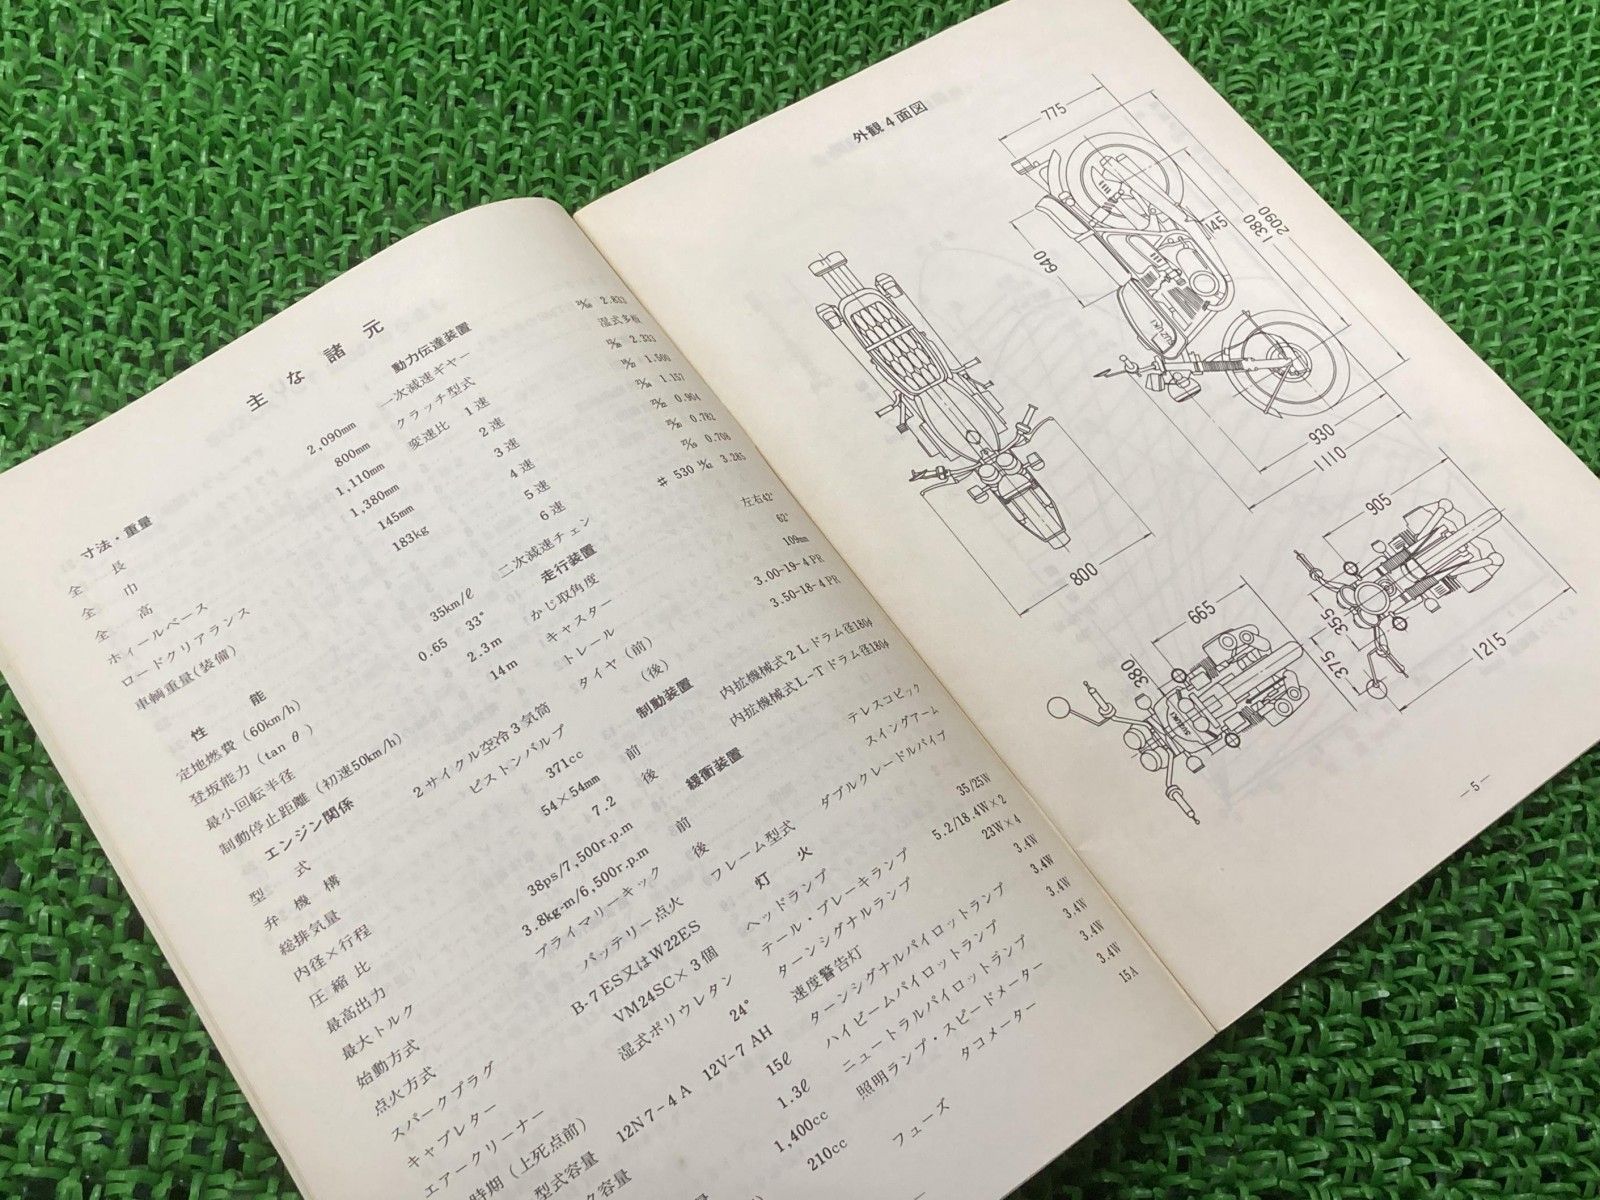 主な諸元
寸法・重量
全長 2,090mm
全巾 800mm
全高 1,110mm
ホイールベース 1,380mm
ロードクリアランス 145mm
車輌重量(装備) 183kg
性能
定地燃費(60km/h) 35km/ℓ
登坂能力(tan θ) 0.65 33°
最小回転半径 2.3m
制動停止距離(初速50km/h) 14m
エンジン関係
型式 2サイクル空冷3気筒
弁機構 ピストンバルブ
総排気量 371cc
内径×行程 54×54mm
圧縮比 7.2
最高出力 38ps/7,500r.p.m
最大トルク 3.8kg-m/6,500r.p.m
始動方式 プライマリーキック
点火方式 バッテリー点火
スパークプラグ B-7ES又はW22ES
キャブレター VM24SC×3個
エアークリーナー 湿式ポリウレタン
時期(上死点前) 24°
型式容量 12N7-4A 12V-7AH
ク容量 15ℓ
1.3ℓ
1,400cc
210cc
動力伝達装置
一次減速ギヤー 2.833
クラッチ型式 湿式多板
変速比 1速 2.333
2速 1.500
3速 1.157
4速 0.904
5速 0.782
6速 0.708
二次減速チェン #530 3.285
走行装置
かじ取角度 左右42°
キャスター 62°
トレール 109mm
タイヤ(前) 3.00-19-4PR
(後) 3.50-18-4PR
制動装置
前 内拡機械式2Lドラム径180φ
後 内拡機械式L-Tドラム径180φ
緩衝装置
前 テレスコピック
後 スイングアーム
フレーム型式 ダブルクレードルパイプ
灯火
ヘッドランプ 35/25W
テール・ブレーキランプ 5.2/18.4W×2
ターンシグナルランプ 23W×4
速度警告灯 3.4W
ターンシグナルパイロットランプ 3.4W
ハイビームパイロットランプ 3.4W
ニュートラルパイロットランプ 3.4W
照明ランプ・スピードメーター 3.4W
タコメーター 3.4W
フューズ 15A
外観4面図
775
2090
1380
145
640
930
1110
800
905
355
375
1215
665
380
SUZUKI
SUZUKI
—5—